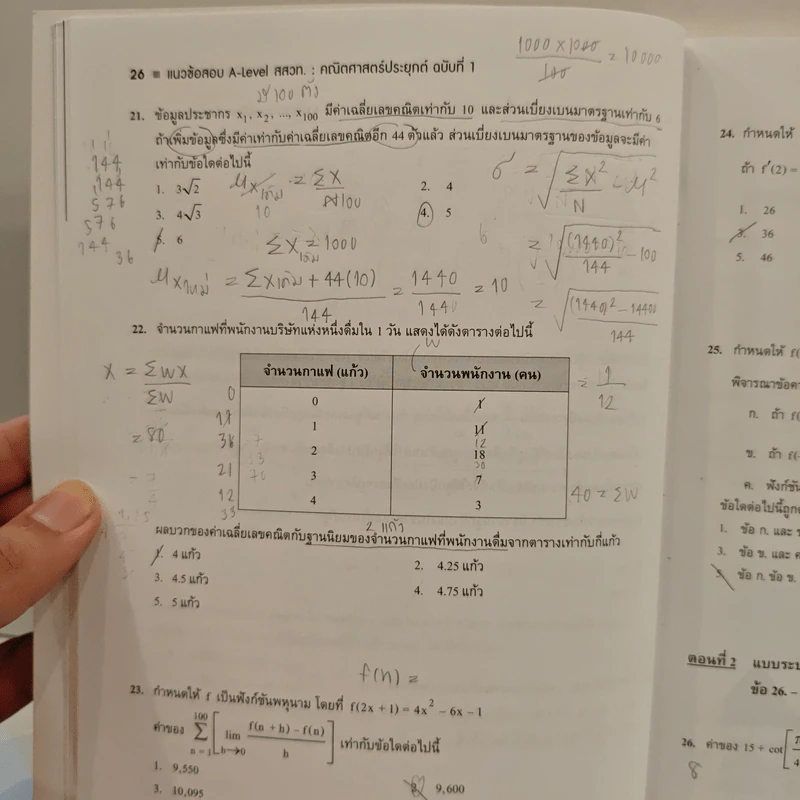 26 ■ แนวข้อสอบ A-Level สสวท. : คณิตศาสตร์ประยุกต์ ฉบับที่ 1
1000 × 1000 / 100 = 10000
21. ข้อมูลประชากร x₁, x₂, ..., x₁₀₀ มีค่าเฉลี่ยเลขคณิตเท่ากับ 10 และส่วนเบี่ยงเบนมาตรฐานเท่ากับ 6
ถ้าเพิ่มข้อมูลซึ่งมีค่าเท่ากับค่าเฉลี่ยเลขคณิตอีก 44 ตัวแล้ว ส่วนเบี่ยงเบนมาตรฐานของข้อมูลจะมีค่า
เท่ากับข้อใดต่อไปนี้
1. 3√2
2. 4
3. 4√3
4. 5
5. 6
144
144
576
576
144
36
μx เดิม = Σx / N 100
10
Σx เดิม = 1000
σ = √(Σx² / N - μ²)
6
= √((1440)² / 144 - 100)
= √((1440)² - 14400 / 144)
μx ใหม่ = Σx เดิม + 44(10) / 144 = 1440 / 1440 = 10
22. จำนวนกาแฟที่พนักงานบริษัทแห่งหนึ่งดื่มใน 1 วัน แสดงได้ดังตารางต่อไปนี้
w
x = Σwx / Σw
= 80
จำนวนกาแฟ (แก้ว) จำนวนพนักงาน (คน)
0 1
1 11
12
2 18
30
3 7
4 3
0
36
21
12
= 1 / 12
40 = Σw
2 แก้ว
ผลบวกของค่าเฉลี่ยเลขคณิตกับฐานนิยมของจำนวนกาแฟที่พนักงานดื่มจากตารางเท่ากับกี่แก้ว
1. 4 แก้ว
2. 4.25 แก้ว
3. 4.5 แก้ว
4. 4.75 แก้ว
5. 5 แก้ว
f(n) =
23. กำหนดให้ f เป็นฟังก์ชันพหุนาม โดยที่ f(2x + 1) = 4x² - 6x - 1
ค่าของ Σ n = 1 100 [lim h→0 f(n + h) - f(n) / h] เท่ากับข้อใดต่อไปนี้
1. 9,550
9,600
3. 10,095
24. กำหนดให้
ถ้า f′(2) =
1. 26
3. 36
5. 46
25. กำหนดให้ f(
พิจารณาข้อคว
ก. ถ้า f(
ข. ถ้า f(-
ค. ฟังก์ชั
ข้อใดต่อไปนี้ถูก
1. ข้อ ก. และ ข
3. ข้อ ข. และ ค
5. ข้อ ก. ข้อ ข.
ตอนที่ 2 แบบระบ
ข้อ 26. –
26. ค่าของ 15 + cot[
8